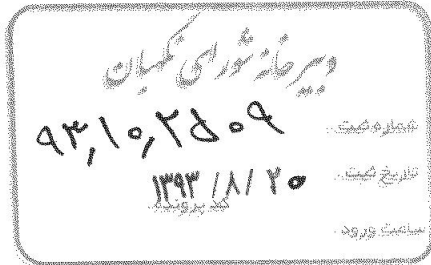 دبیرخانه شورای نگهبان
شماره ثبت: ۹۳,۱۰,۲۵۰۹
تاریخ ثبت: ۱۳۹۳/۸/۲۰
کد پرونده:
ساعت ورود: